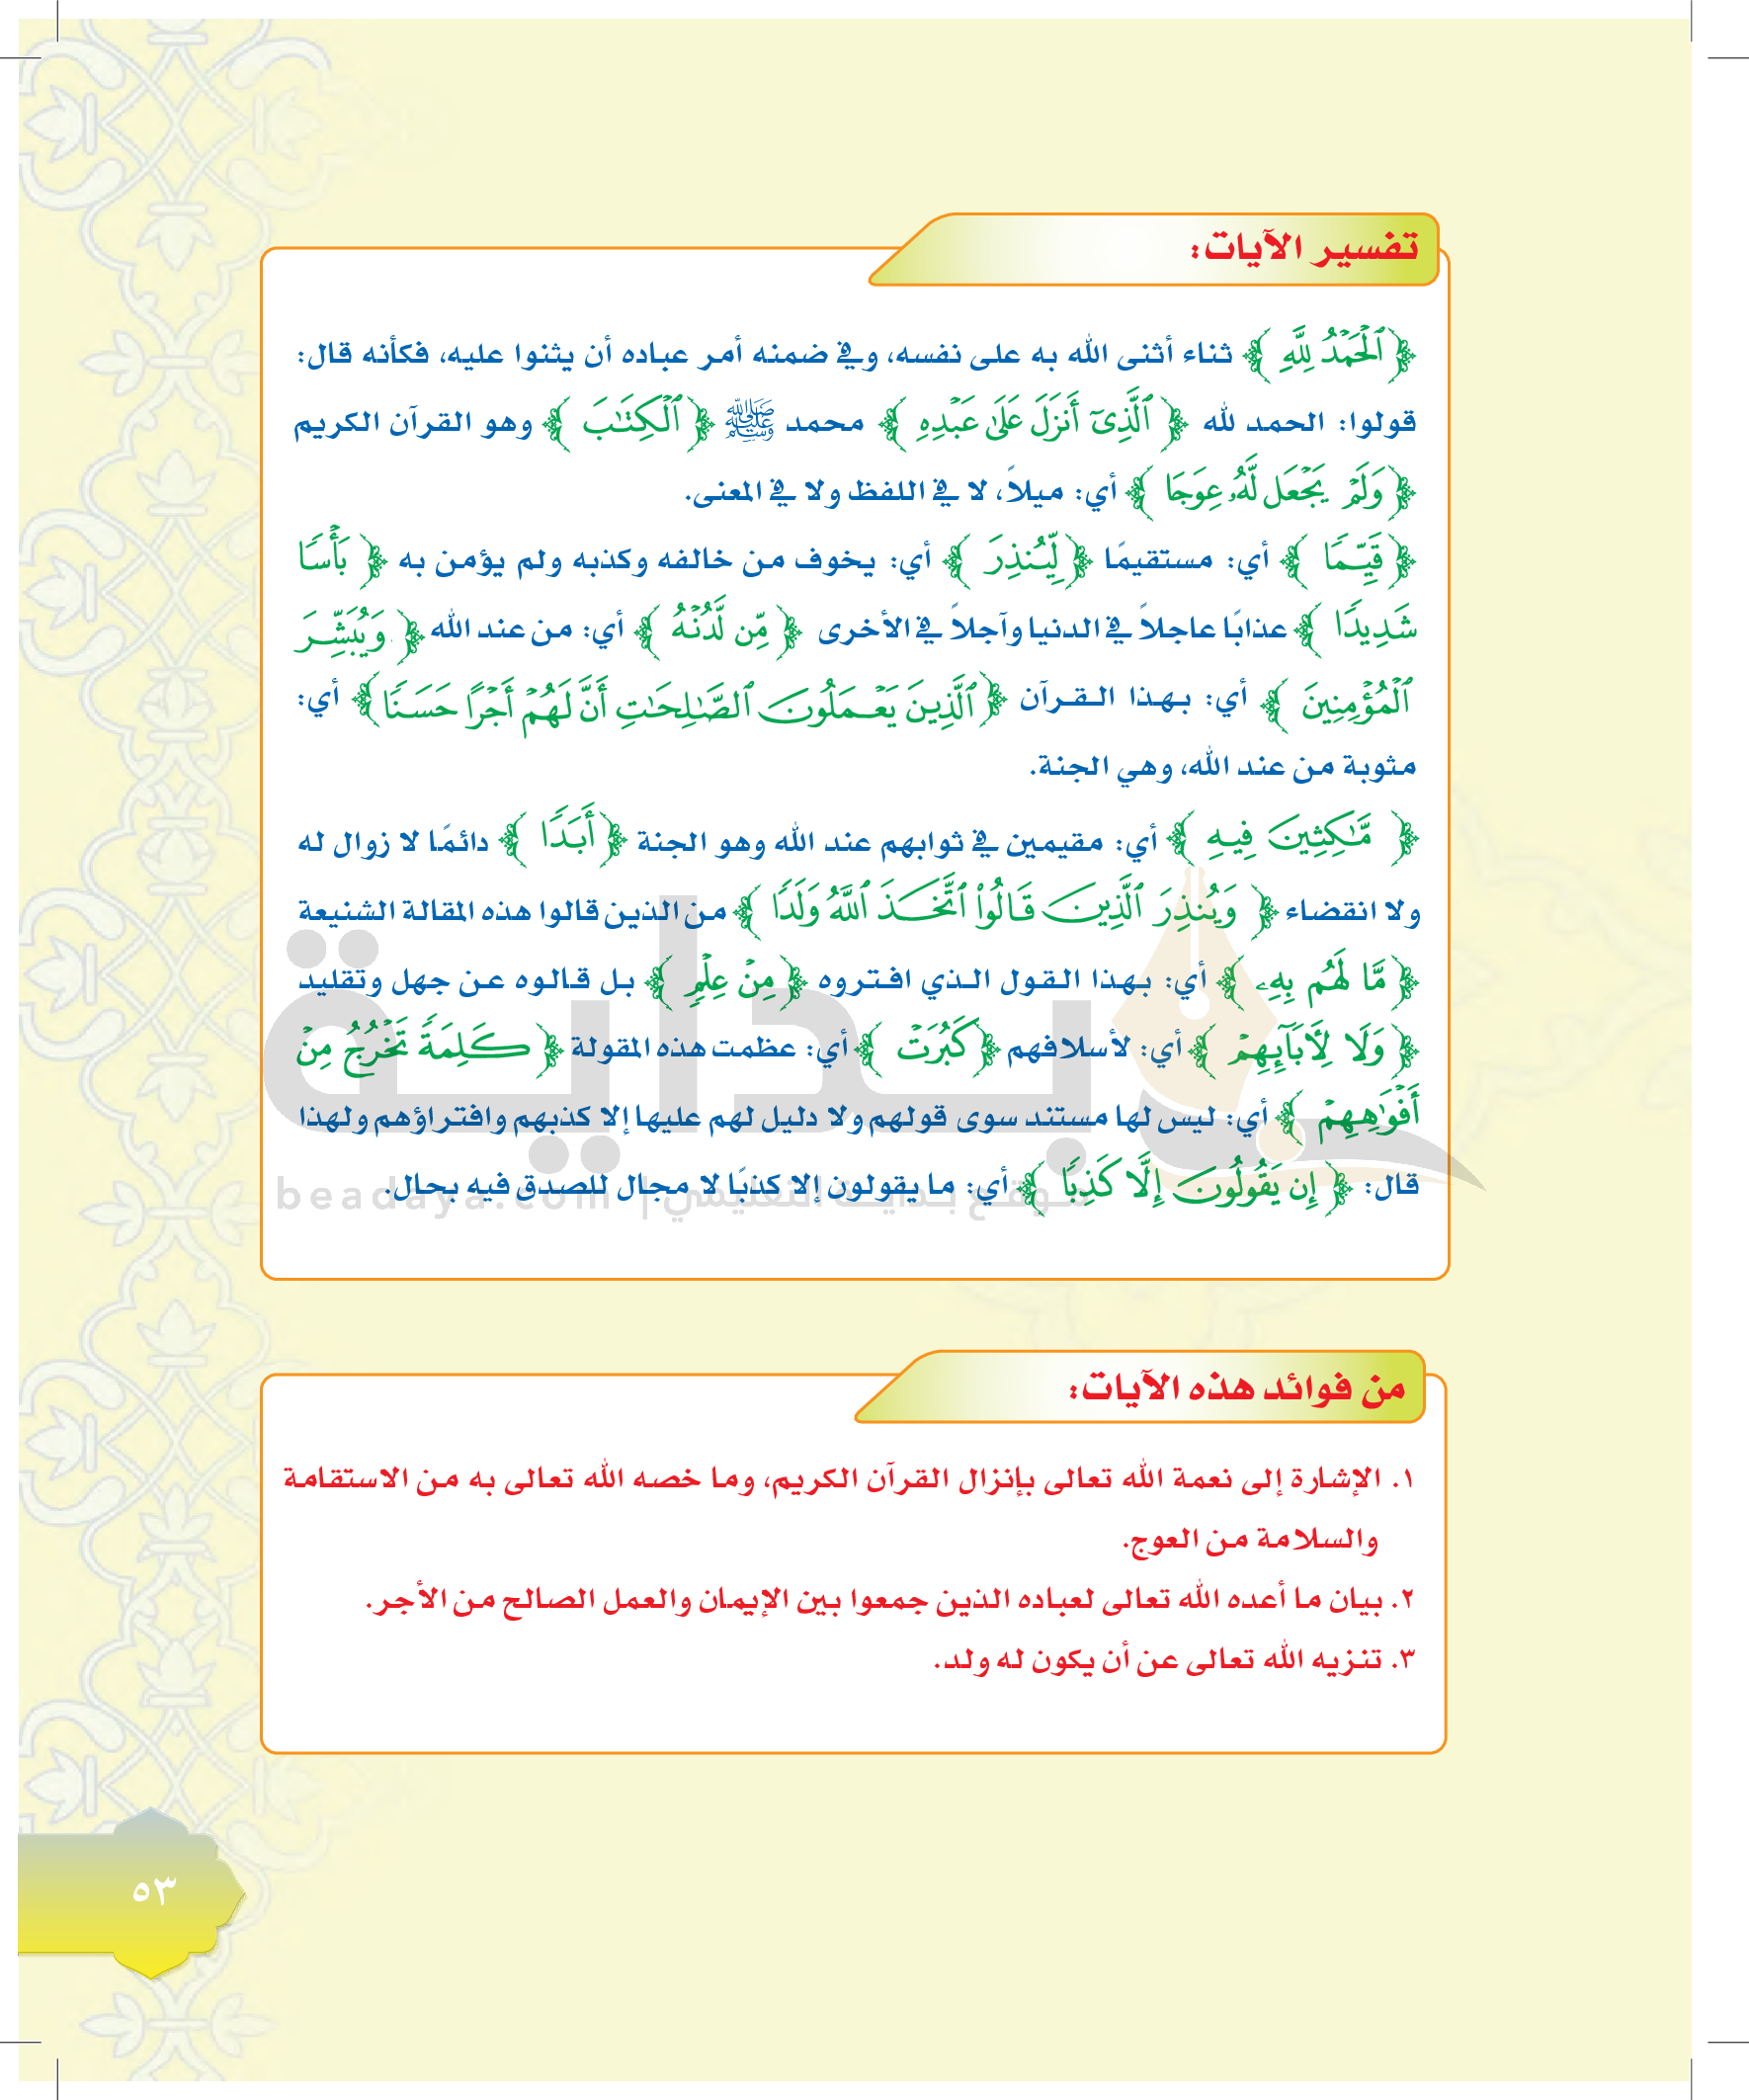 تفسير الآيات:
﴿ٱلْحَمْدُ لِلَّهِ﴾ ثناء أثنى الله به على نفسه، وفي ضمنه أمر عباده أن يثنوا عليه، فكأنه قال:
قولوا: الحمد لله ﴿ٱلَّذِىٓ أَنزَلَ عَلَىٰ عَبْدِهِ﴾ محمد ﷺ ﴿ٱلْكِتَٰبَ﴾ وهو القرآن الكريم
﴿وَلَمْ يَجْعَل لَّهُۥ عِوَجَا﴾ أي: ميلاً، لا في اللفظ ولا في المعنى.
﴿قَيِّمًا﴾ أي: مستقيمًا ﴿لِّيُنذِرَ﴾ أي: يخوف من خالفه وكذبه ولم يؤمن به ﴿بَأْسًا
شَدِيدًا﴾ عذابًا عاجلاً في الدنيا وآجلاً في الأخرى ﴿مِّن لَّدُنْهُ﴾ أي: من عند الله ﴿وَيُبَشِّرَ
ٱلْمُؤْمِنِينَ﴾ أي: بهذا القرآن ﴿ٱلَّذِينَ يَعْمَلُونَ ٱلصَّٰلِحَٰتِ أَنَّ لَهُمْ أَجْرًا حَسَنًا﴾ أي:
مثوبة من عند الله، وهي الجنة.
﴿مَّٰكِثِينَ فِيهِ﴾ أي: مقيمين في ثوابهم عند الله وهو الجنة ﴿أَبَدًا﴾ دائمًا لا زوال له
ولا انقضاء ﴿وَيُنذِرَ ٱلَّذِينَ قَالُوا۟ ٱتَّخَذَ ٱللَّهُ وَلَدًا﴾ من الذين قالوا هذه المقالة الشنيعة
﴿مَّا لَهُم بِهِۦ﴾ أي: بهذا القول الذي افتروه ﴿مِنْ عِلْمٍ﴾ بل قالوه عن جهل وتقليد
﴿وَلَا لِءَابَآئِهِمْ﴾ أي: لأسلافهم ﴿كَبُرَتْ﴾ أي: عظمت هذه المقولة ﴿كَلِمَةً تَخْرُجُ مِنْ
أَفْوَٰهِهِمْ﴾ أي: ليس لها مستند سوى قولهم ولا دليل لهم عليها إلا كذبهم وافتراؤهم ولهذا
قال: ﴿إِن يَقُولُونَ إِلَّا كَذِبًا﴾ أي: ما يقولون إلا كذبًا لا مجال للصدق فيه بحال.
بداية
موقع بداية التعليمي | beadaya.com
من فوائد هذه الآيات:
١. الإشارة إلى نعمة الله تعالى بإنزال القرآن الكريم، وما خصه الله تعالى به من الاستقامة
والسلامة من العوج.
٢. بيان ما أعده الله تعالى لعباده الذين جمعوا بين الإيمان والعمل الصالح من الأجر.
٣. تنزيه الله تعالى عن أن يكون له ولد.
٥٣